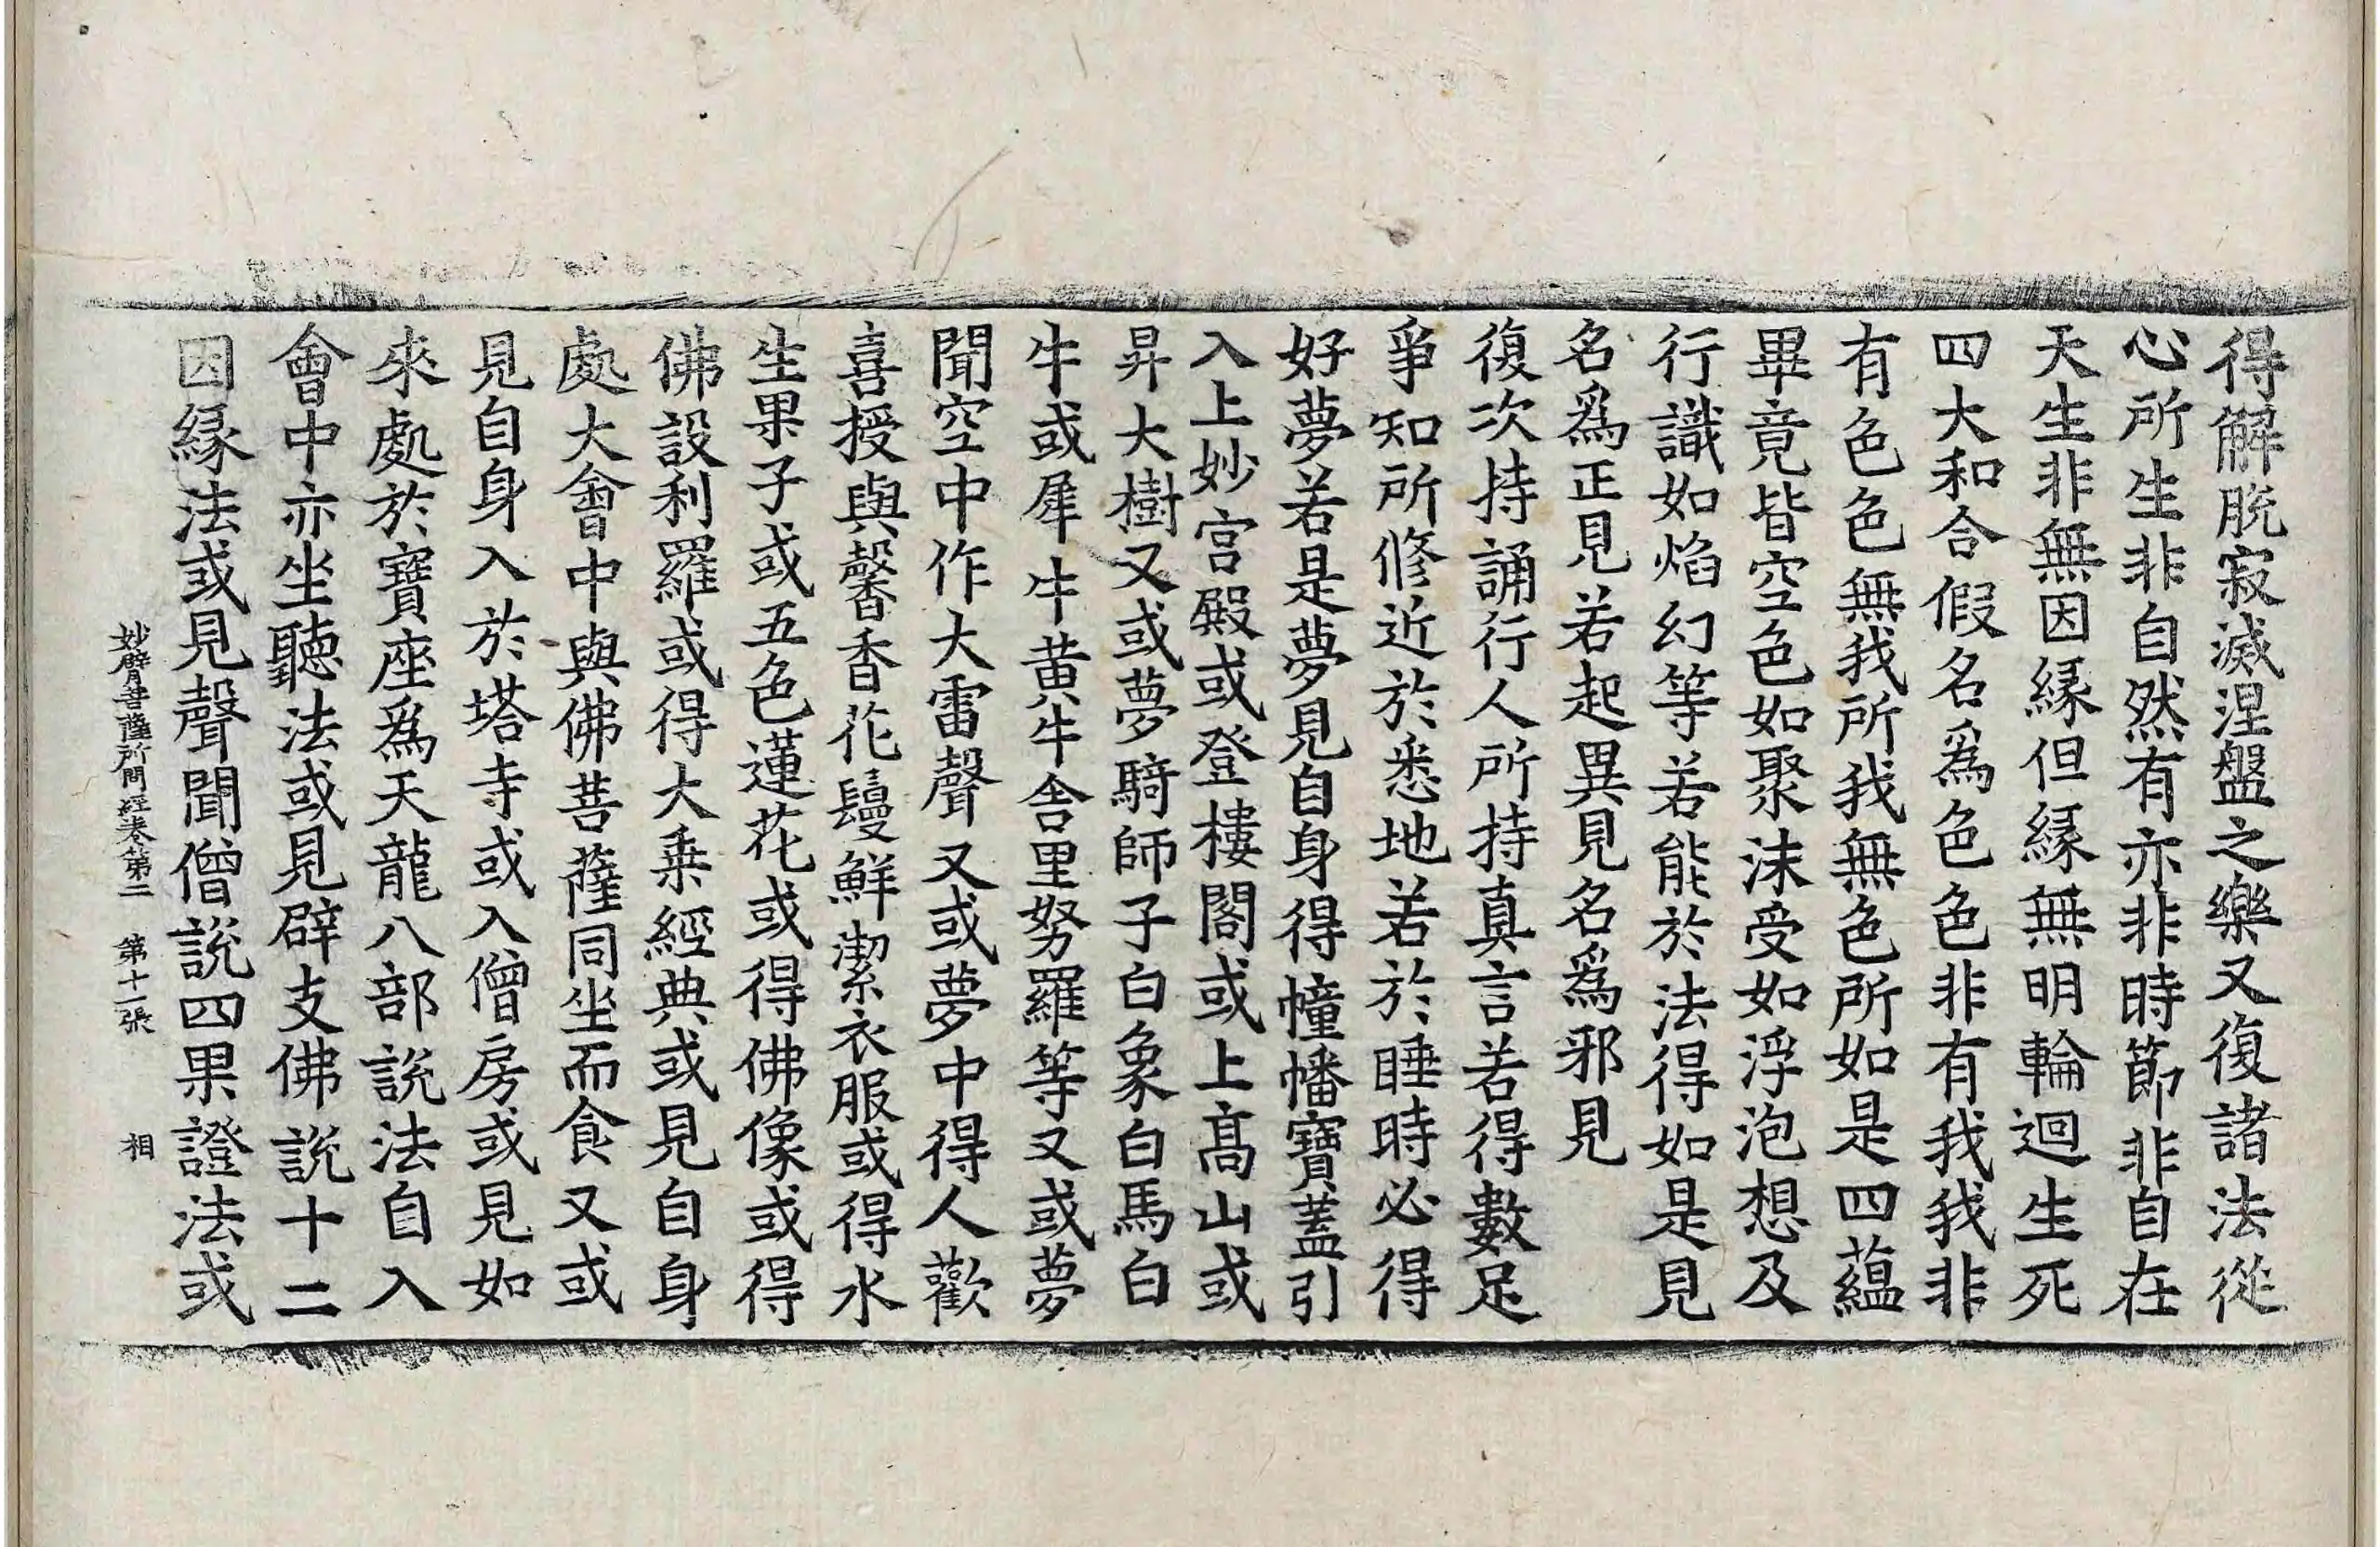 得解脫寂滅涅盤之樂又復諸法從
心所生非自然有亦非時節非自在
天生非無因緣但緣無明輪迴生死
四大和合假名爲色色非有我我非
有色色無我所我無色所如是四蘊
畢竟皆空色如聚沫受如浮泡想及
行識如焰幻等若能於法得如是見
名爲正見若起異見名爲邪見
復次持誦行人所持真言若得數足
爭知所修近於悉地若於睡時必得
好夢若是夢見自身得幢幡寶蓋引
入上妙宮殿或登樓閣或上高山或
昇大樹又或夢騎師子白象白馬白
牛或犀牛牛黃牛舍里努羅等又或夢
聞空中作大雷聲又或夢中得人歡
喜授與馨香花鬘鮮潔衣服或得水
生果子或五色蓮花或得佛像或得
佛設利羅或得大乘經典或見自身
處大會中與佛菩薩同坐而食又或
見自身入於塔寺或入僧房或見如
來處於寶座爲天龍八部說法自入
會中亦坐聽法或見辟支佛說十二
因緣法或見聲聞僧說四果證法或
妙臂菩薩所問經卷第二 第十一張 相